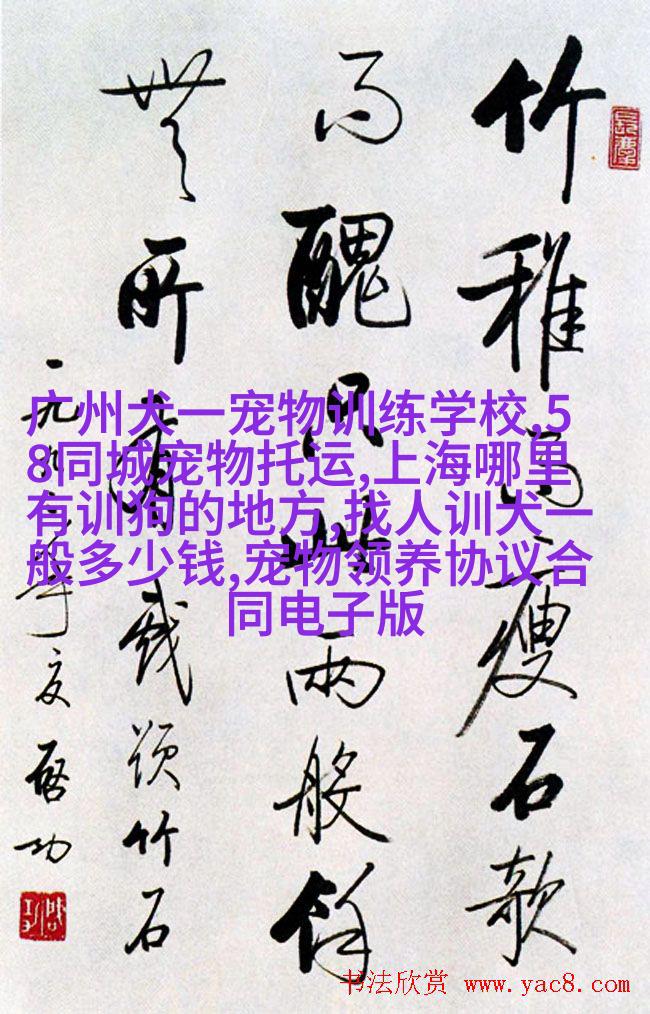 竹稚而瘦石欹
而醜只此兩般餘
無所有戲題竹石
一九年夏启功
广州犬一宠物训练学校,5
8同城宠物托运,上海哪里
有训狗的地方,找人训犬一
般多少钱,宠物领养协议合
同电子版
书法欣赏 www.yac8.com